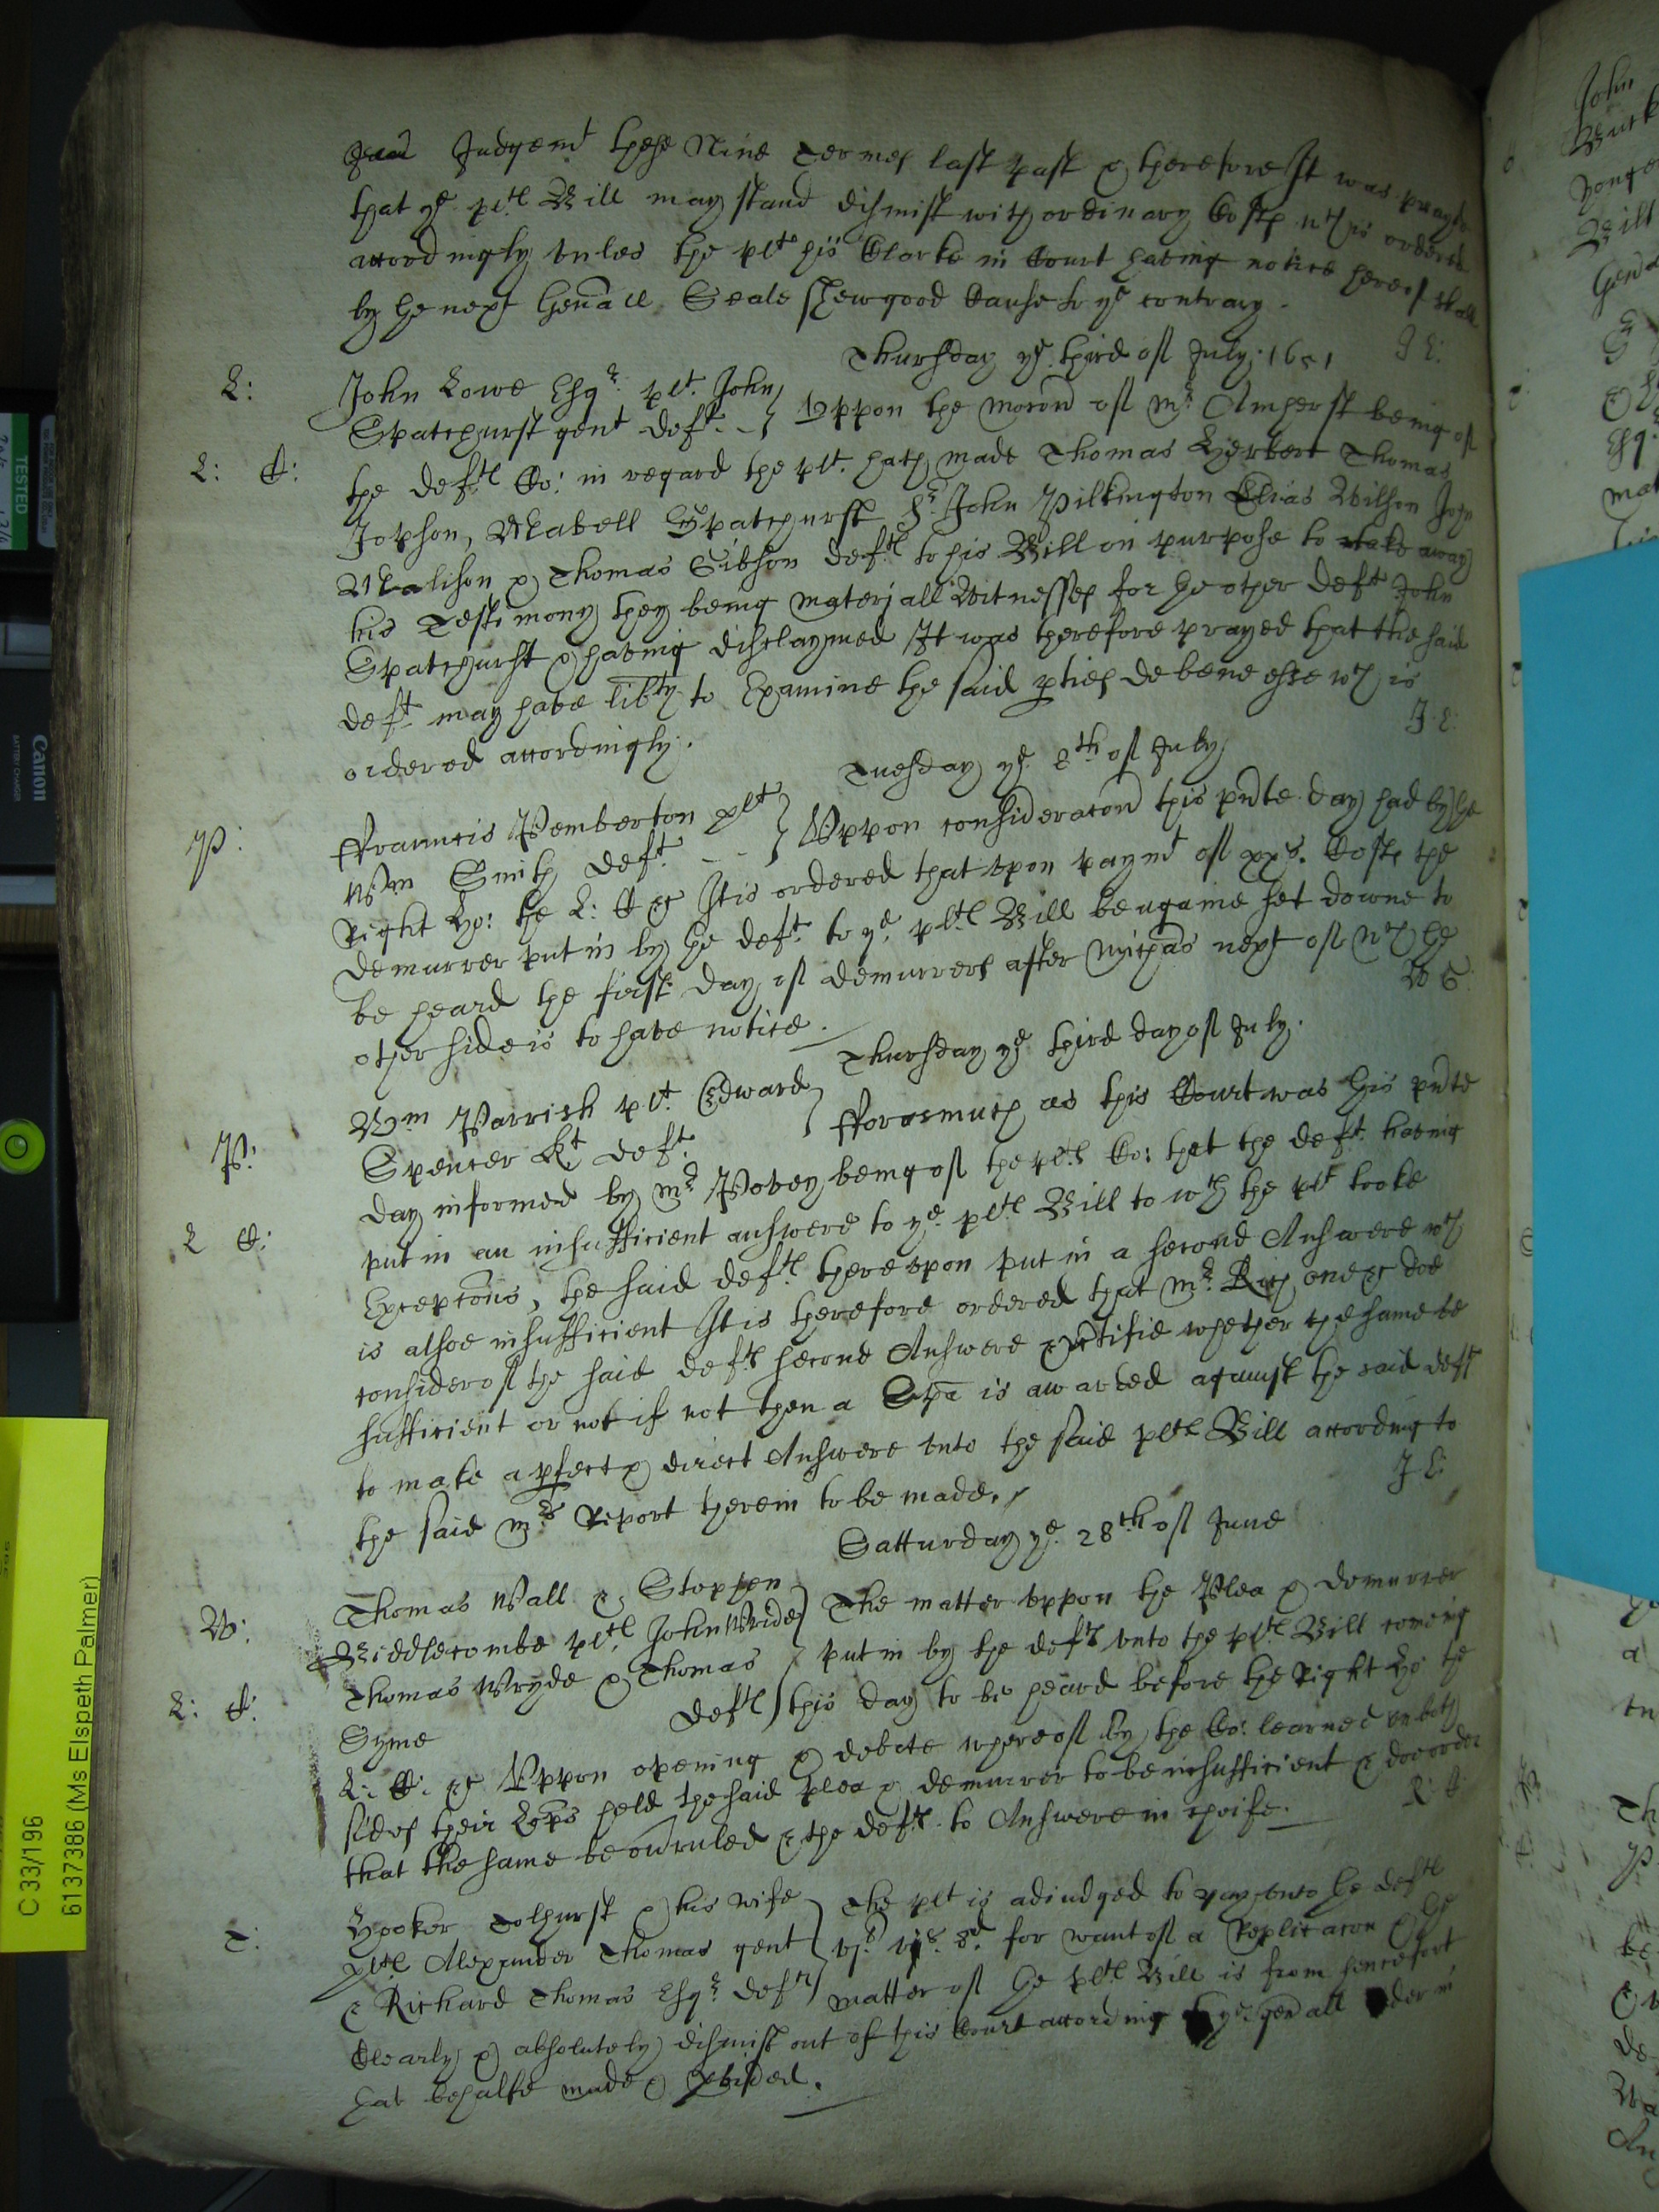 Judgemt these Nine Termes last past & therefore It was prayed
that ye plts Bill may stand dismist with ordinary Costs wch is ordered
accordingly unles the plts his Clarke in Court having notice hereof shall
by the next Genall Seale shew good Cause to ye contrary.
Thursday ye third of July: 1651 J E:
L: John Lowe Esqr. plt. John
Spatchurst gent deft. Uppon the mocon of Mr. Amherst being of
L: C: the defts Co: in regard the plt. hath made Thomas Herbert Thomas
Jopson, Mabell Spatchurst Sr. John Pilkington Elias Wilson John
Malison & Thomas Gibson defts to his Bill on purpose to take away
his Testimony they being materiall Witnesses for the other deft John
Spatchurst & having disclaymed It was therefore prayed that the said
deft may have libty to Examine the said pties de bene esse wch is
ordered accordingly. J. E:
Tuesday ye 8th of July
P: ffrauncis Pemberton plt
Wm Smith deft. Uppon consideracon this pnte day had by the
Right Ho: the L: C &c It is ordered that upon paymt of xxs. Costs the
demurrer put in by the deft. to ye plts Bill be againe set downe to
be heard the first day of demurrers after Michas next of wch the
other side is to have notice. W G
Thursday ye third day of July.
P: Wm Parrish plt. Edward
Spencer Kt deft. fforasmuch as this Court was this pnte
day informed by Mr Povey being of the plts Co: that the deft. having
L C: put in an insufficient answere to ye plts Bill to wch the plt tooke
Excepcons, the said defts thereupon put in a second Answere wch
is alsoe insufficient It is therefore ordered that Mr. Rich one &c doe
consider of the said defts second Answere & certifie whether the same be
sufficient or not if not then a Spa is awarded against the said deft
to make a pfect & direct Answere unto the said plts Bill according to
the said Mrs Report therein to be made. J E:
Satturday ye 28th of June
W: Thomas Wall & Stephen
Middlecombe plts John Wride The matter uppon the Plea & demurrer
Thomas Wryde & Thomas put in by the defts unto the plts Bill coming
L: C: Syme defts this day to be heard before the Right Ho: the
L: C: &c Uppon opening & debate whereof by the Co: learned on both
sides their Lopps held the said plea & demurrer to be insufficient & doe order
that the same be ovruled & the defts to Answere in cheife. R: C:
T: Hooker Tolhurst & his wife The plt is adiudged to pay unto the defts
plts Alexander Thomas gent vjs. 8d. for want of a Replicacon & the
& Richard Thomas Esqr. defts matter of the plts Bill is from henceforth
Clearly & absolutely dismist out of this Court according to ye genall order in
that behalfe made & pvided.
C 33/196
6137386 (Ms Elspeth Palmer)
TESTED
Canon
BATTERY CHARGER